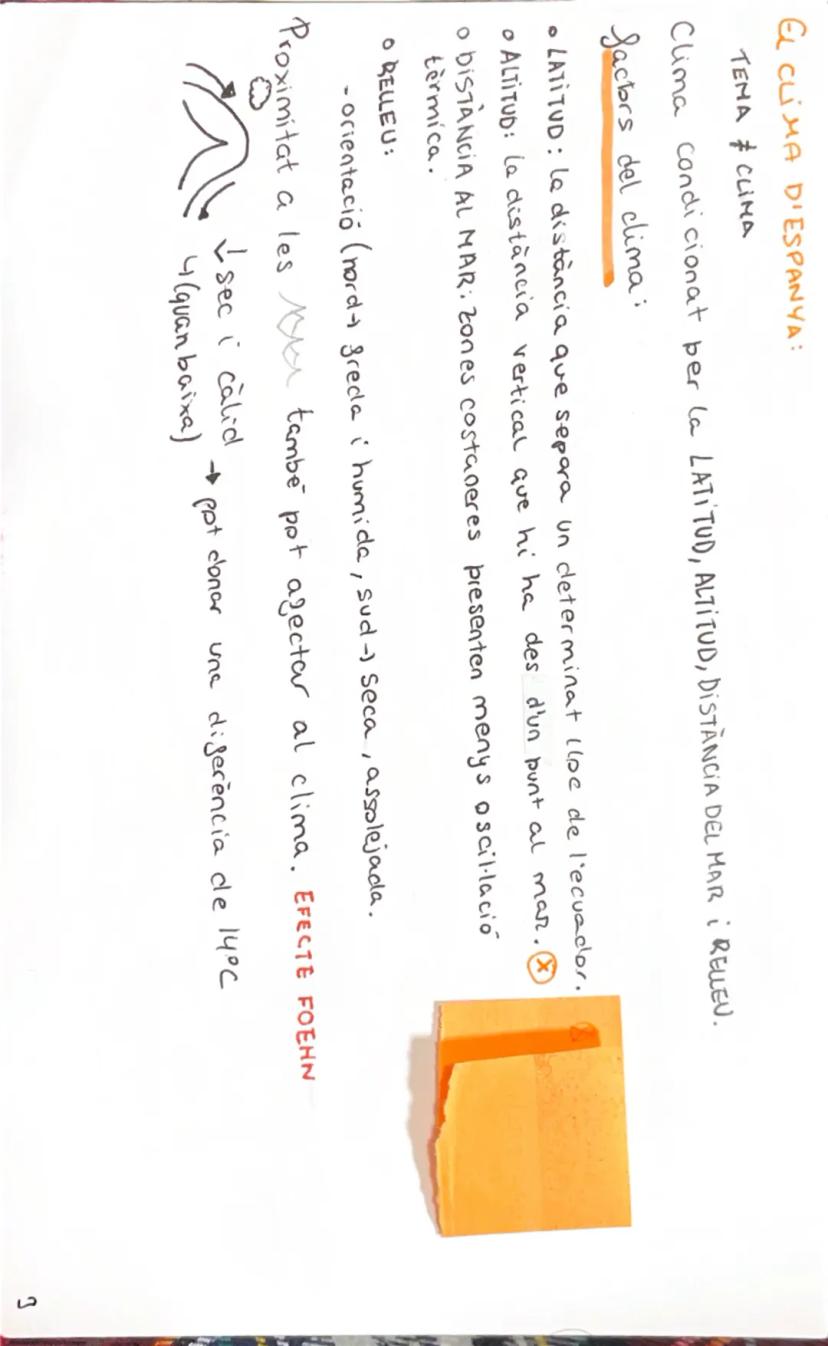 El CLIMA D'ESPANYA:
TEMA ≠ CLIMA
Clima condicionat per la LATITUD, ALTITUD, DISTÀNCIA DEL MAR i RELLEU.
factors del clima:
• LATITUD: la distància que separa un determinat lloc de l'ecuador.
• ALTITUD: la distància vertical que hi ha des d'un punt al mar. (x)
• DISTÀNCIA AL MAR: zones costaneres presenten menys oscil·lació
tèrmica.
• RELLEU:
- orientació (nord → freda i humida, sud → seca, assolejada.
Proximitat a les també pot afectar al clima. EFECTE FOEHN
↓ sec i càlid → pot donar una diferència de 14°C
↳ (quan baixa)